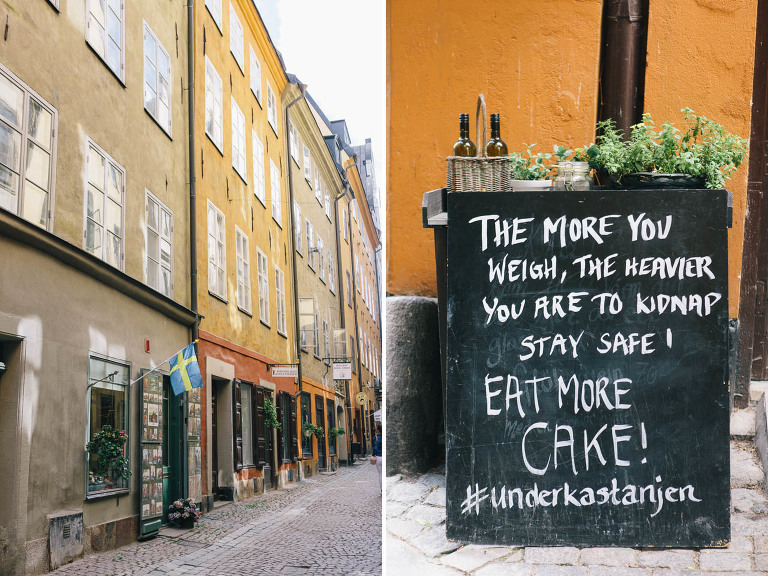 THE MORE YOU
WEIGH, THE HEAVIER
YOU ARE TO KIDNAP
STAY SAFE!
EAT MORE
CAKE!
#underkastanjen